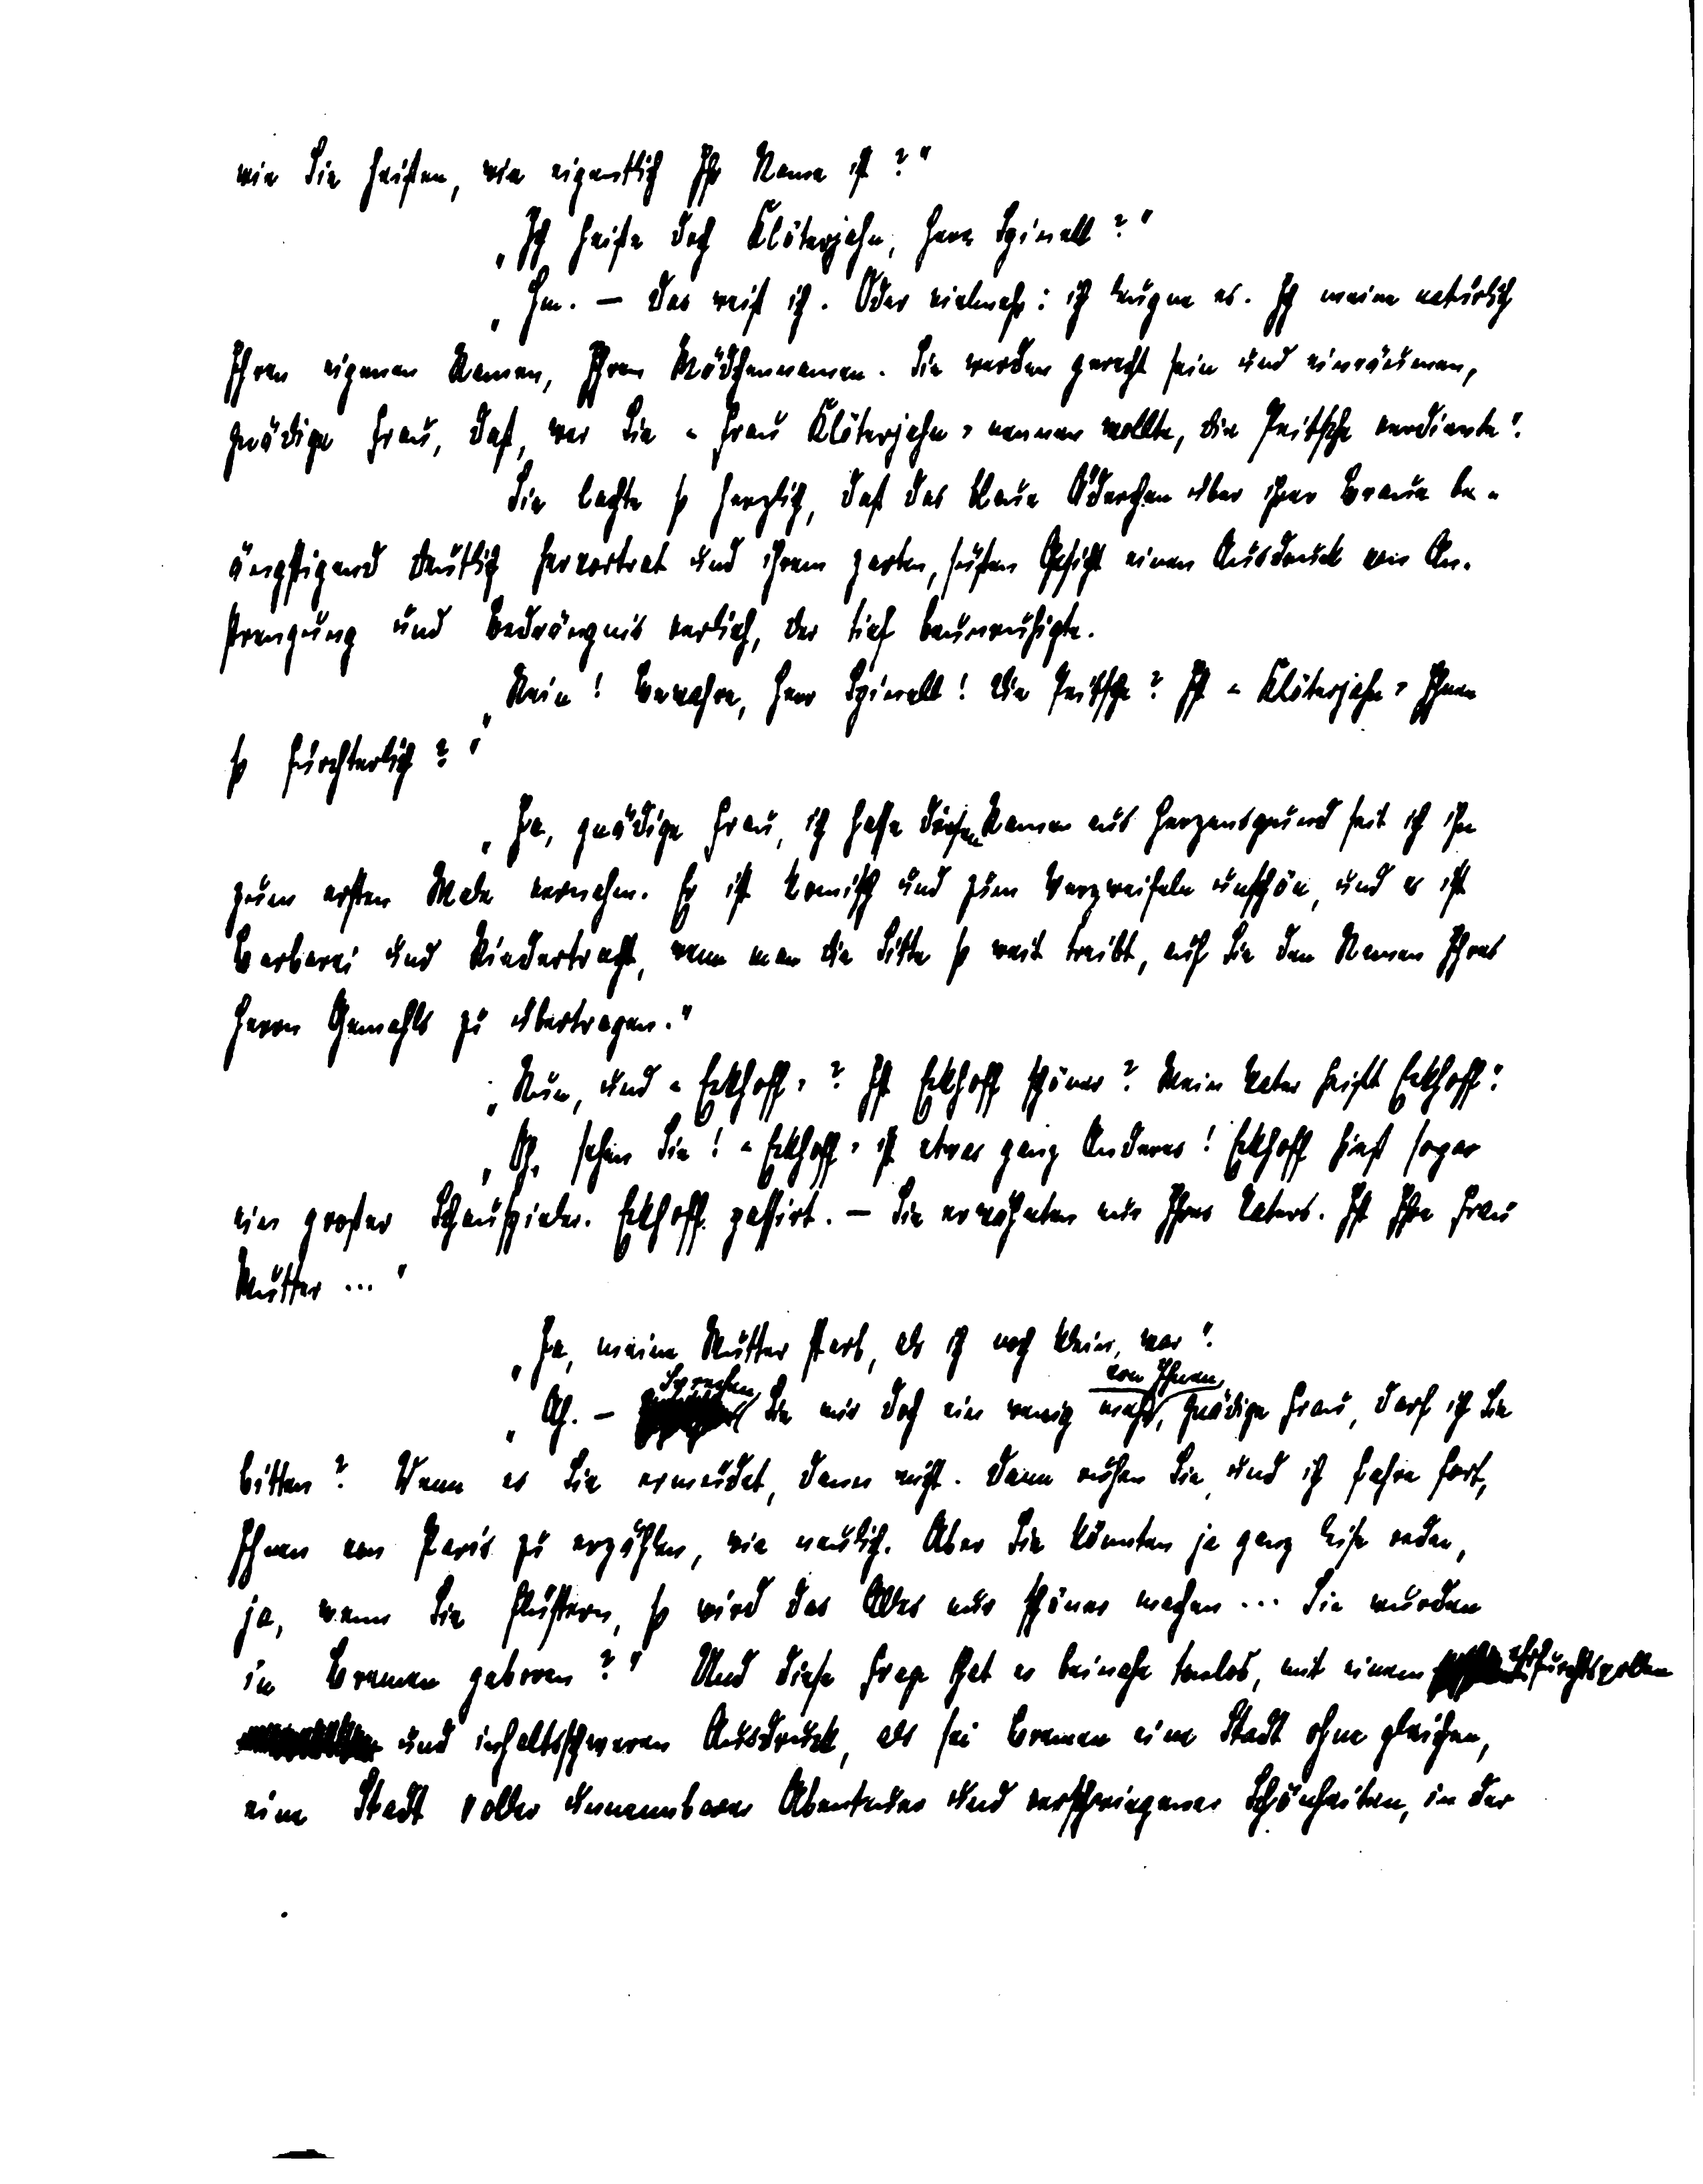 wie Sie heißen, wie eigentlich Ihr Name ist?"
„Ich heiße doch Klöterjahn, Herr Spinell?"
„Hm. — Das weiß ich. Oder vielmehr: ich leugne es. Ich meine natürlich
Ihren eigenen Namen, Ihren Mädchennamen. Sie werden gerecht sein und einräumen,
gnädige Frau, daß, wer Sie «Frau Klöterjahn» nennen wollte, die Peitsche verdiente".
Sie lachte so herzlich, daß das blaue Äderchen über ihrer Braue be-
ängstigend deutlich hervortrat und ihrem zarten, süßen Gesicht einen Ausdruck von An-
strengung und Bedrängnis verlieh, der tief beunruhigte.
„Nein! Bewahre, Herr Spinell! Die Peitsche? Ist «Klöterjahn» Ihnen
so fürchterlich?"
„Ja, gnädige Frau, ich hasse diesen Namen aus Herzensgrund seit ich ihn
zum ersten Male vernahm. Er ist komisch und zum Verzweifeln unschön, und es ist
Barbarei und Niedertracht, wenn man die Sitte so weit treibt, auf Sie den Namen Ihres
Herrn Gemahls zu übertragen."
„Nun, und «Eckhoff»? Ist Eckhoff schöner? Mein Vater heißt Eckhoff".
„Oh, sehen Sie! «Eckhoff» ist etwas ganz Anderes! Eckhoff hieß sogar
ein großer Schauspieler. Eckhoff passirt. — Sie erwähnten nur Ihres Vaters. Ist Ihre Frau
Mutter ..."
„Ja, meine Mutter starb, als ich noch klein war".
„Ah. — Sprechen Sie mir doch ein wenig mehr von Ihnen, gnädige Frau, darf ich Sie
bitten? Wenn es Sie ermüdet, dann nicht. Dann ruhen Sie, und ich fahre fort,
Ihnen von Paris zu erzählen, wie neulich. Aber Sie könnten ja ganz leise reden,
ja, wenn Sie flüstern, so wird das Alles nur schöner machen ... Sie wurden
in Bremen geboren?" Und diese Frage that er beinahe tonlos, mit einem ehrfurchtsvollen
und inhaltsschweren Ausdruck, als sei Bremen eine Stadt ohne gleichen,
eine Stadt voller unnennbarer Abenteuer und verschwiegener Schönheiten, in der